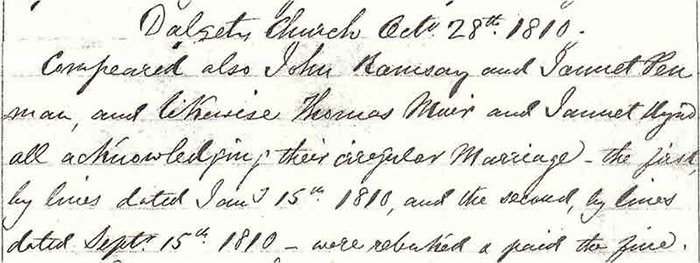 Dalsety Church Octr. 28th. 1810.
Compeared also John Ramsay and Jannet Pen
man, and likewise Thomas Muir and Jannet Hynd
all acknowledging their irregular Marriage - the first,
by lines dated Jany 15th. 1810, and the second, by lines
dated Septr. 15th. 1810 - were rebuked & paid the fine.